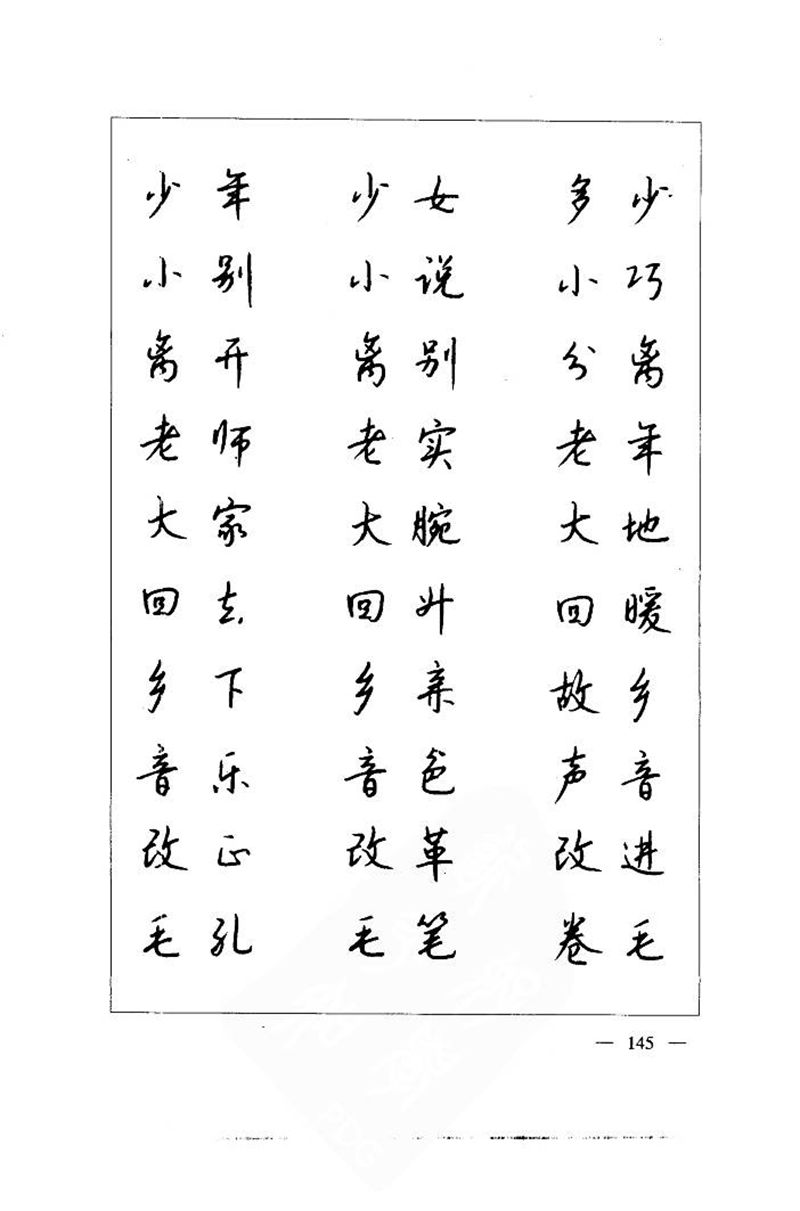 少年 少女 多少
小别 小说 小巧
离开 离别 分离
老师 老实 老年
大家 大腕 大地
回去 回升 回暖
乡下 乡亲 故乡
音乐 音色 声音
改正 改革 改进
毛孔 毛笔 卷毛
— 145 —